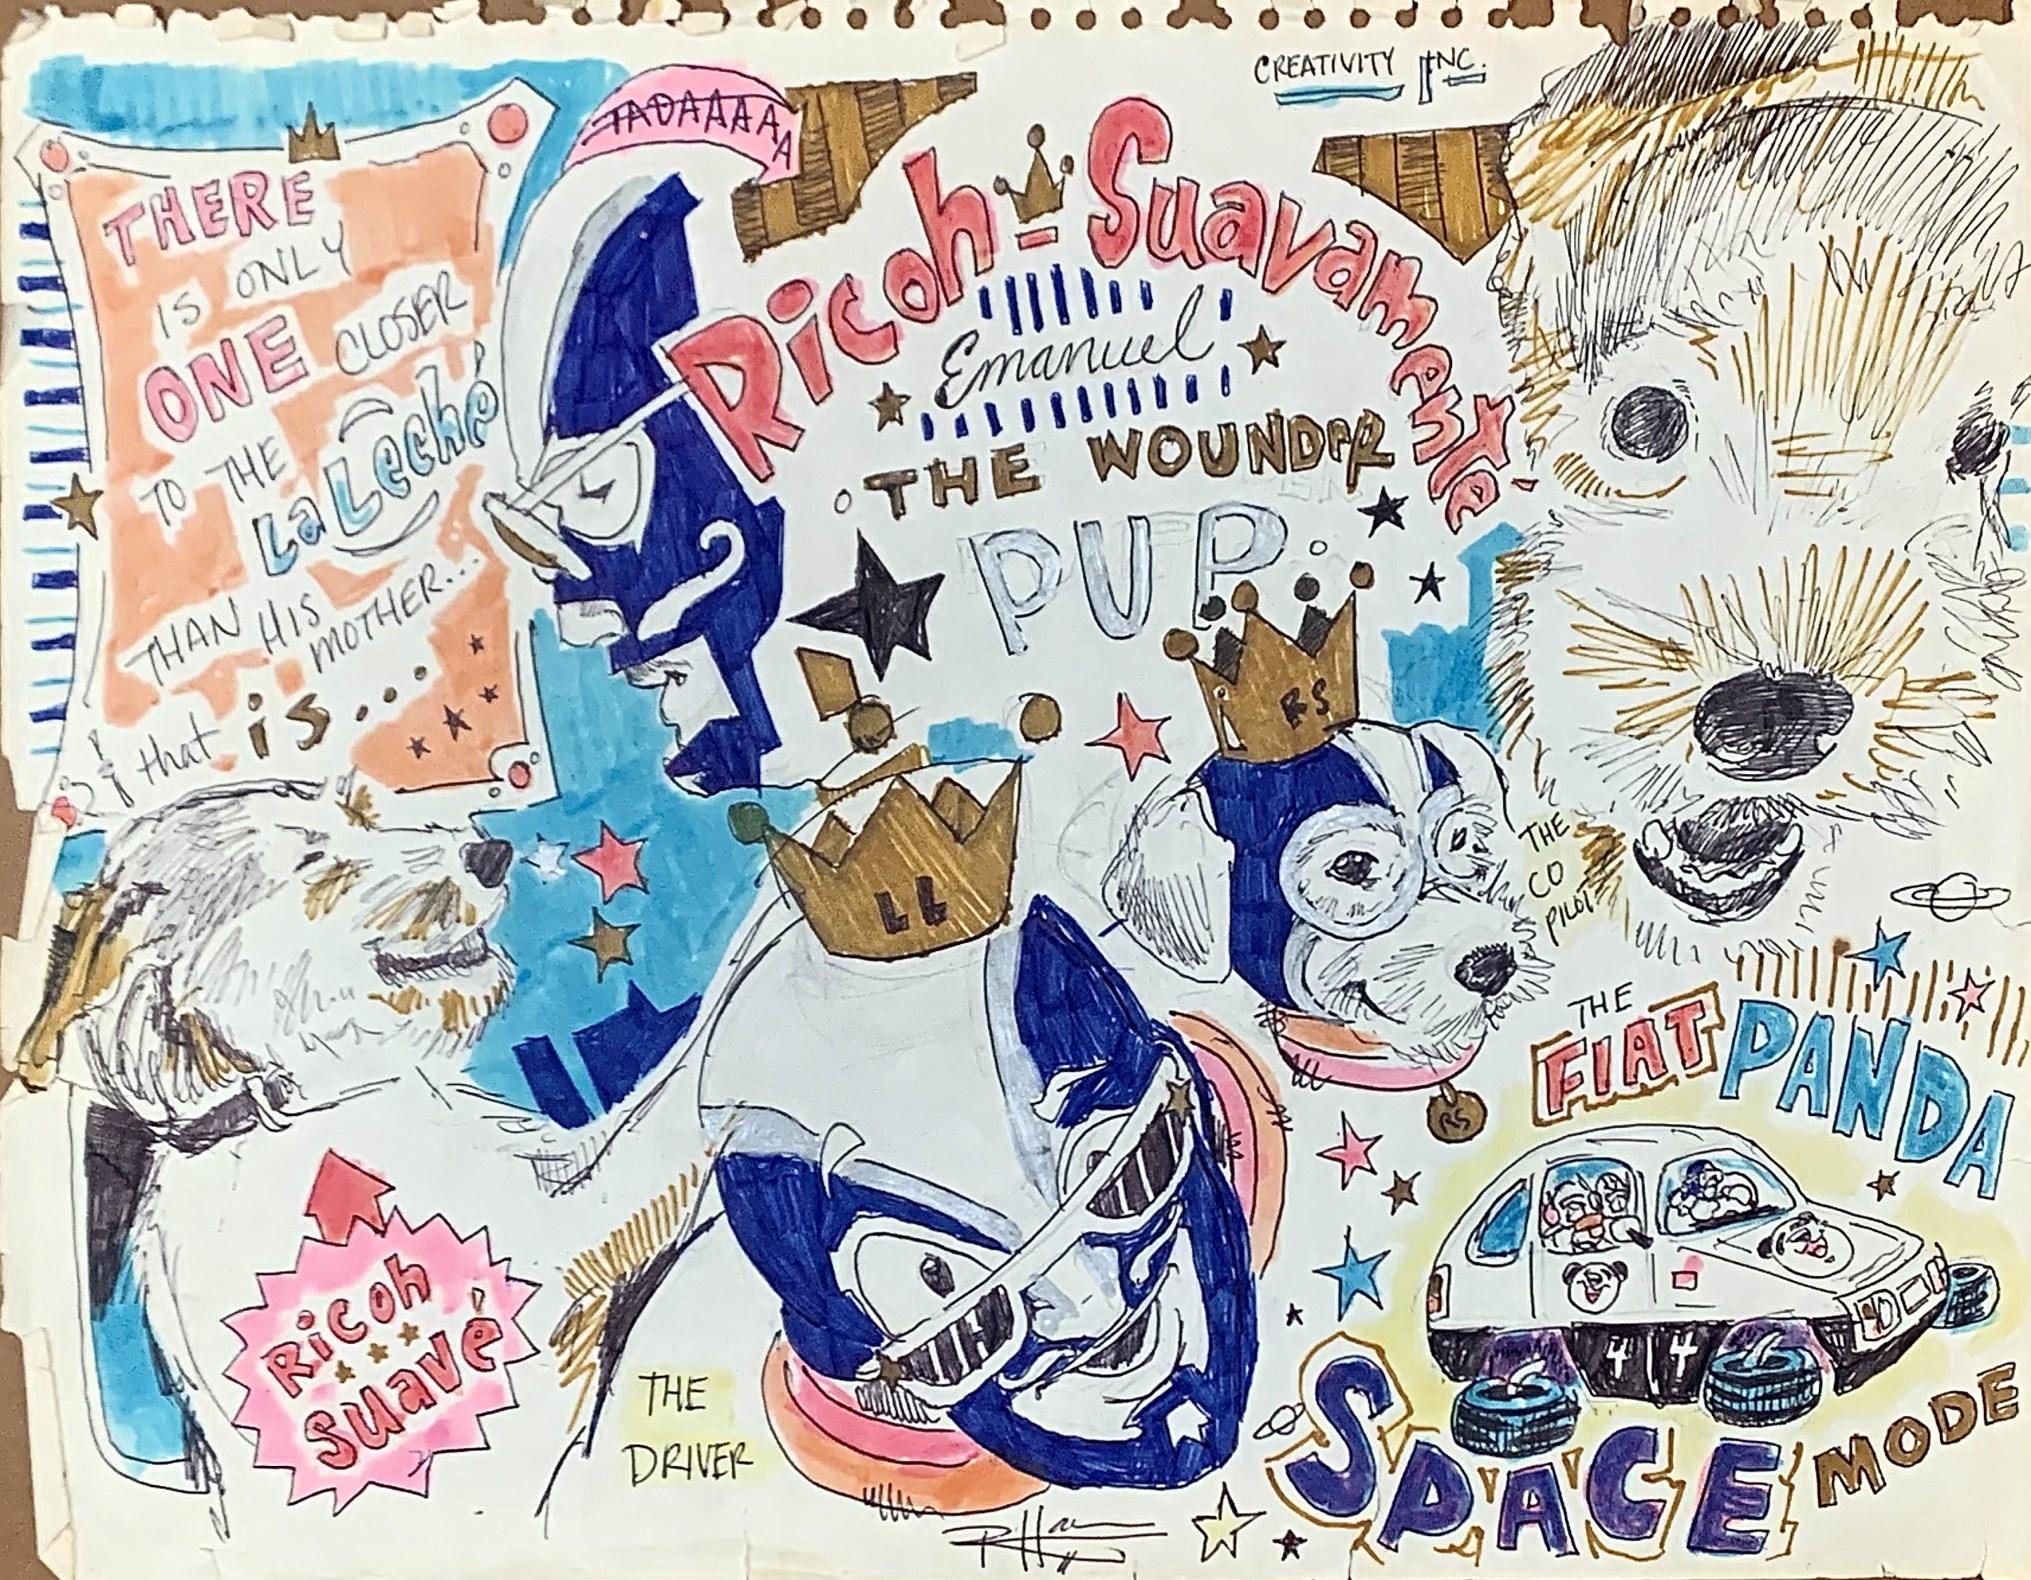 CREATIVITY INC.
TADAAAAA
THERE
IS ONLY
ONE CLOSER
TO THE
LaLeché
THAN HIS
MOTHER...
& that is...
Ricoh-Suavamenté
Emanuel
THE WOUNDER
PUP
RS
LL
THE
CO
PILOT
RS
THE
FIAT PANDA
4 4
SPACE MODE
Ricoh
Suavé
THE
DRIVER